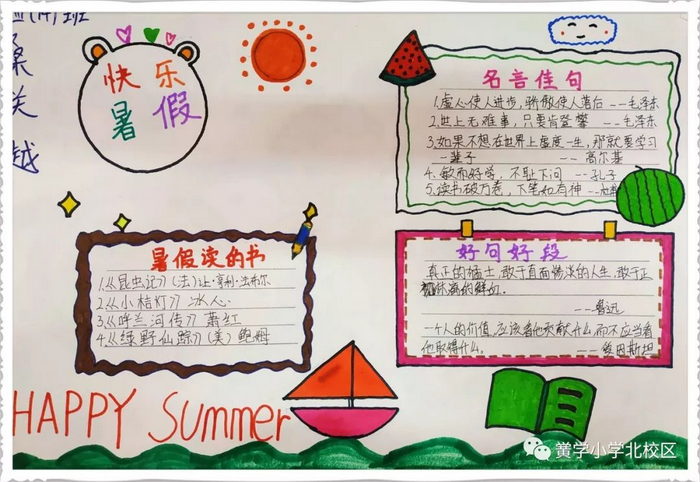 (14)班
桑
关
越
快乐
暑假
名言佳句
1.虚心使人进步,骄傲使人落后 --毛泽东
2.世上无难事,只要肯登攀 --毛泽东
3.如果不想在世界上虚度一生,那就要学习
一辈子 -- 高尔基
4.敏而好学,不耻下问 --孔子
5.读书破万卷,下笔如有神 --杜甫
暑假读的书
1.《昆虫记》(法)让·亨利·法布尔
2.《小桔灯》冰心
3.《呼兰河传》萧红
4.《绿野仙踪》(美)鲍姆
好句好段
真正的猛士,敢于直面惨淡的人生,敢于正
淋漓的鲜血.
---鲁迅
一个人的价值,应该看他贡献什么,而不应当看
他取得什么.
---爱因斯坦
HAPPY Summer
黄学小学北校区